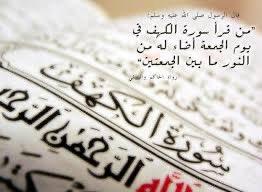 قال الرسول صلى الله عليه وسلم:
"من قرأ سورة الكهف في
يوم الجمعة أضاء له من
النور ما بين الجمعتين"
رواه الحاكم والبيهقي
سورة الكهف
الرحمن الرحيم
الله